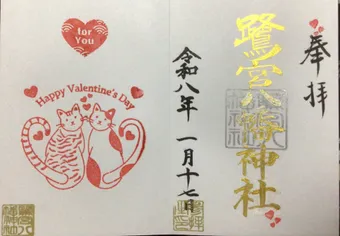 for
You
Happy Valentine's Day
奉拝
鷺宮八幡神社
令和八年 一月十七日